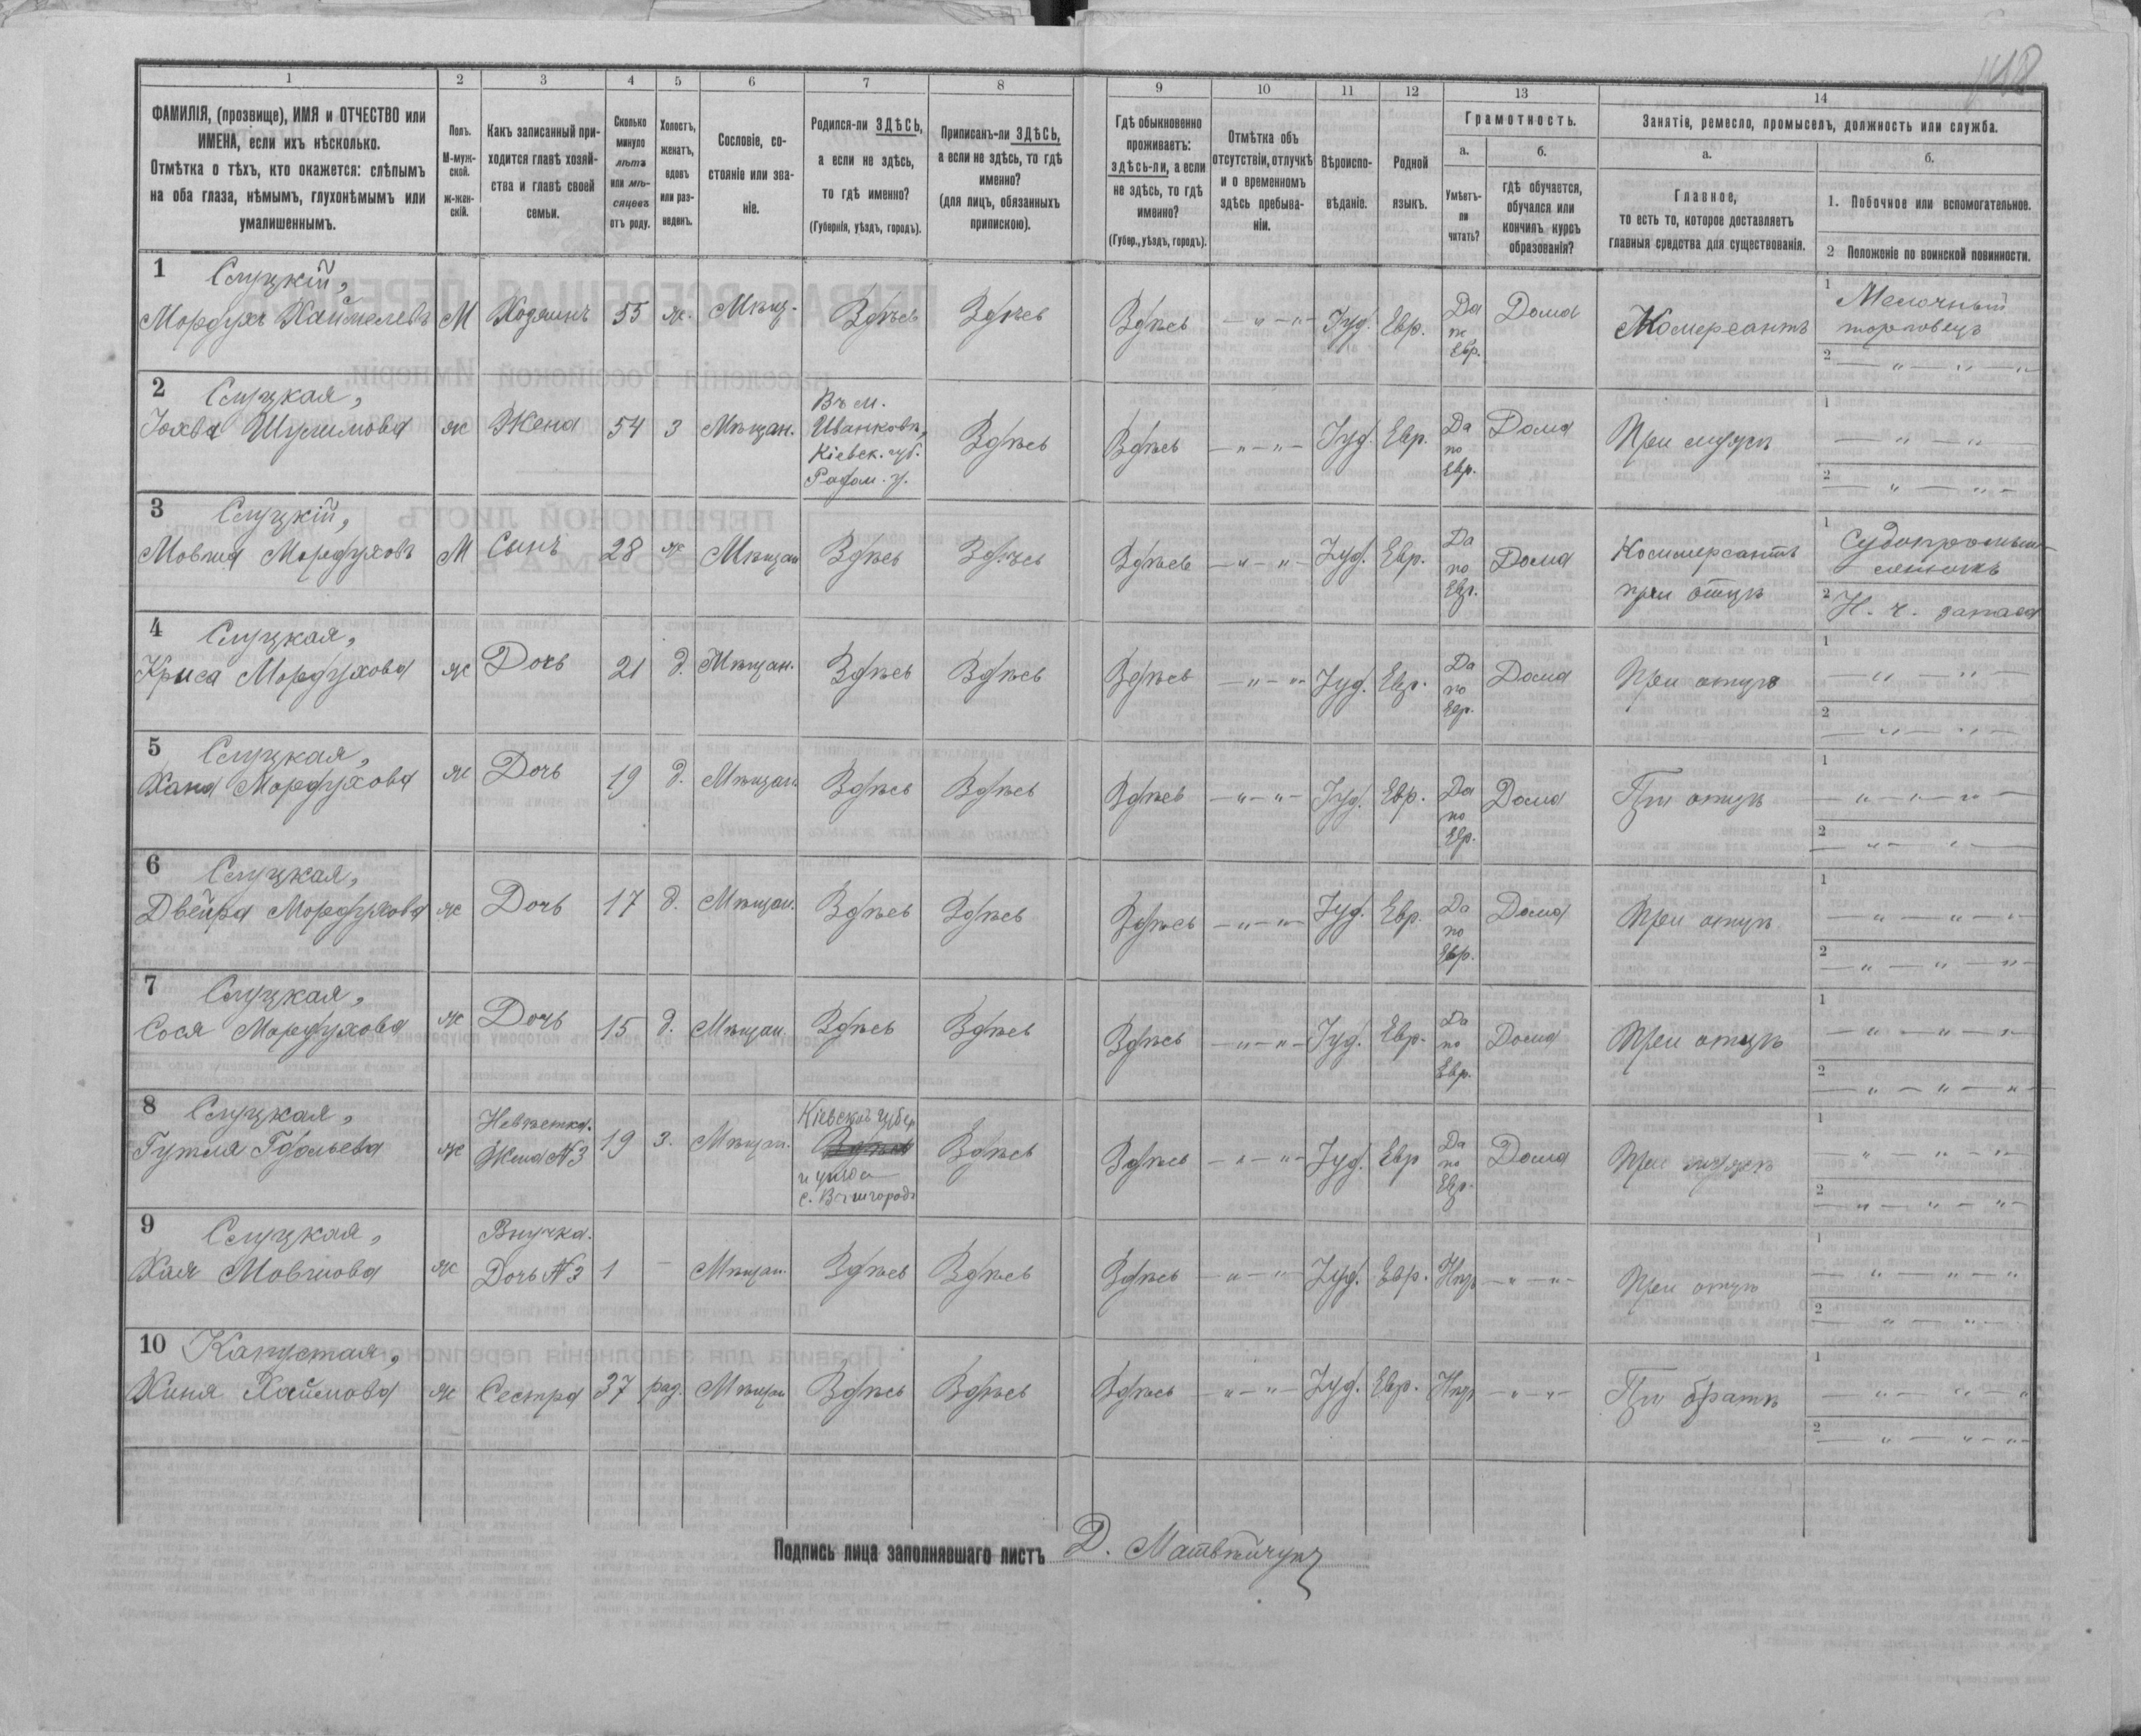 118
1 2 3 4 5 6 7 8 9 10 11 12 13 14
ФАМИЛІЯ, (прозвище), ИМЯ и ОТЧЕСТВО или
ИМЕНА, если ихъ нѣсколько.
Отмѣтка о тѣхъ, кто окажется: слѣпымъ
на оба глаза, нѣмымъ, глухонѣмымъ или
умалишеннымъ.
Полъ.
М-муж-
ской.
ж-жен-
скій.
Какъ записанный при-
ходится главѣ хозяй-
ства и главѣ своей
семьи.
Сколько
минуло
лѣтъ
или мѣ-
сяцевъ
отъ роду.
Холостъ,
женатъ,
вдовъ
или раз-
веденъ.
Сословіе, со-
стояніе или зва-
ніе.
Родился-ли ЗДѢСЬ,
а если не здѣсь,
то гдѣ именно?
(Губернія, уѣздъ, городъ).
Приписанъ-ли ЗДѢСЬ,
а если не здѣсь, то гдѣ
именно?
(для лицъ, обязанныхъ
припискою).
Гдѣ обыкновенно
проживаетъ:
здѣсь-ли, а если
не здѣсь, то гдѣ
именно?
(Губер., уѣздъ, городъ).
Отмѣтка объ
отсутствіи, отлучкѣ
и о временномъ
здѣсь пребыва-
ніи.
Вѣроиспо-
вѣданіе.
Родной
языкъ.
Грамотность.
а.
Умѣетъ-
ли
читать?
б.
гдѣ обучается,
обучался или
кончилъ курсъ
образованія?
Занятіе, ремесло, промыселъ, должность или служба.
а.
Главное,
то есть то, которое доставляетъ
главныя средства для существованія.
б.
1. Побочное или вспомогательное.
2 Положеніе по воинской повинности.
1 Слуцкій,
Мордухъ Хаймелевъ М Хозяинъ 55 ж. Мѣщ. Здѣсь Здѣсь Здѣсь — " — " — Іуд. Евр. Да по Евр. Дома Комерсантъ
1 Мелочный
торговецъ
2 — " — " — "
2 Слуцкая,
Шулимова ж Жена 54 з Мѣщан. Въ м. Иванковѣ, Кіевск. губ. Радом. у. Здѣсь Здѣсь — " — " — Іуд. Евр. Да по Евр. Дома При мужѣ
1 — " — " —
2 — " — " —
3 Слуцкій,
Мовша Мордуховъ М Сынъ 28 ж Мѣщан Здѣсь Здѣсь Здѣсь — " — " — Іуд. Евр. Да по Евр. Дома Коммерсантъ при отцѣ
1 Судопромыш-
ленникъ
2 Н. ч. запаса
4 Слуцкая,
Криса Мордухова ж Дочь 21 д. Мѣщан. Здѣсь Здѣсь Здѣсь — " — " Іуд. Евр. Да по Евр. Дома При отцѣ
1 — " — " —
2 — " — " —
5 Слуцкая,
Хана Мордухова ж Дочь 19 д. Мѣщан. Здѣсь Здѣсь Здѣсь — " — " — Іуд. Евр. Да по Евр. Дома При отцѣ
1 — " — " — " —
2 — " — " —
6 Слуцкая,
Двейра Мордухова ж Дочь 17 д. Мѣщан. Здѣсь Здѣсь Здѣсь — " — " — Іуд. Евр. Да по Евр. Дома При отцѣ
1 — " — " — " —
2 — " — " — " —
7 Слуцкая,
Сося Мордухова ж Дочь 15 д. Мѣщан. Здѣсь Здѣсь Здѣсь — " — " — Іуд. Евр. Да по Евр. Дома При отцѣ
1 — " — " — " —
2 — " — " — " —
8 Слуцкая,
Гутля Гдальева ж Невѣстка. Жена №3 19 з. Мѣщан. Кіевской губер. Здѣсь и уѣзда с. Вышгородъ Здѣсь Здѣсь — " — " — Іуд. Евр Да по Евр. Дома При мужѣ
1 — " — " — " —
2 — " — " — " —
9 Слуцкая,
Хая Мовшова ж Внучка. Дочь №3 1 — Мѣщан. Здѣсь Здѣсь Здѣсь — " — " Іуд. Евр. Нѣтъ — " — " — При отцѣ
1 — " — " — "
2 — " — " —
10 Капустая,
Хиня Хаймова ж Сестра 37 раз. Мѣщан Здѣсь Здѣсь Здѣсь — " — " — Іуд. Евр. Нѣтъ — " — " — При братѣ
1 — " — " — "
2 — " — " — " —
Подпись лица заполнявшаго листъ Д. Матвѣйчукъ